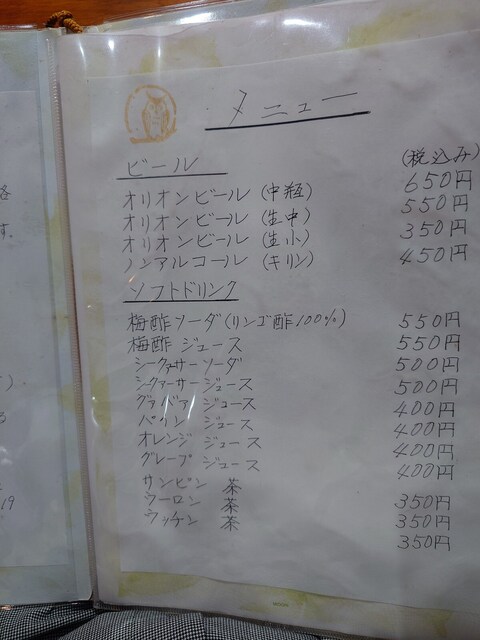 メニュー
(税込み)
ビール
オリオンビール (中瓶) 650円
オリオンビール (生中) 550円
オリオンビール (生小) 350円
ノンアルコール (キリン) 450円
ソフトドリンク
梅酢ソーダ(リンゴ酢100%) 550円
梅酢 ジュース 550円
シークァサーソーダ 500円
シークァーサージュース 500円
グァバァ ジュース 400円
パイン ジュース 400円
オレンジ ジュース 400円
グレープ ジュース 400円
サンピン 茶 350円
ウーロン 茶 350円
ウッチン 茶 350円
す。
19